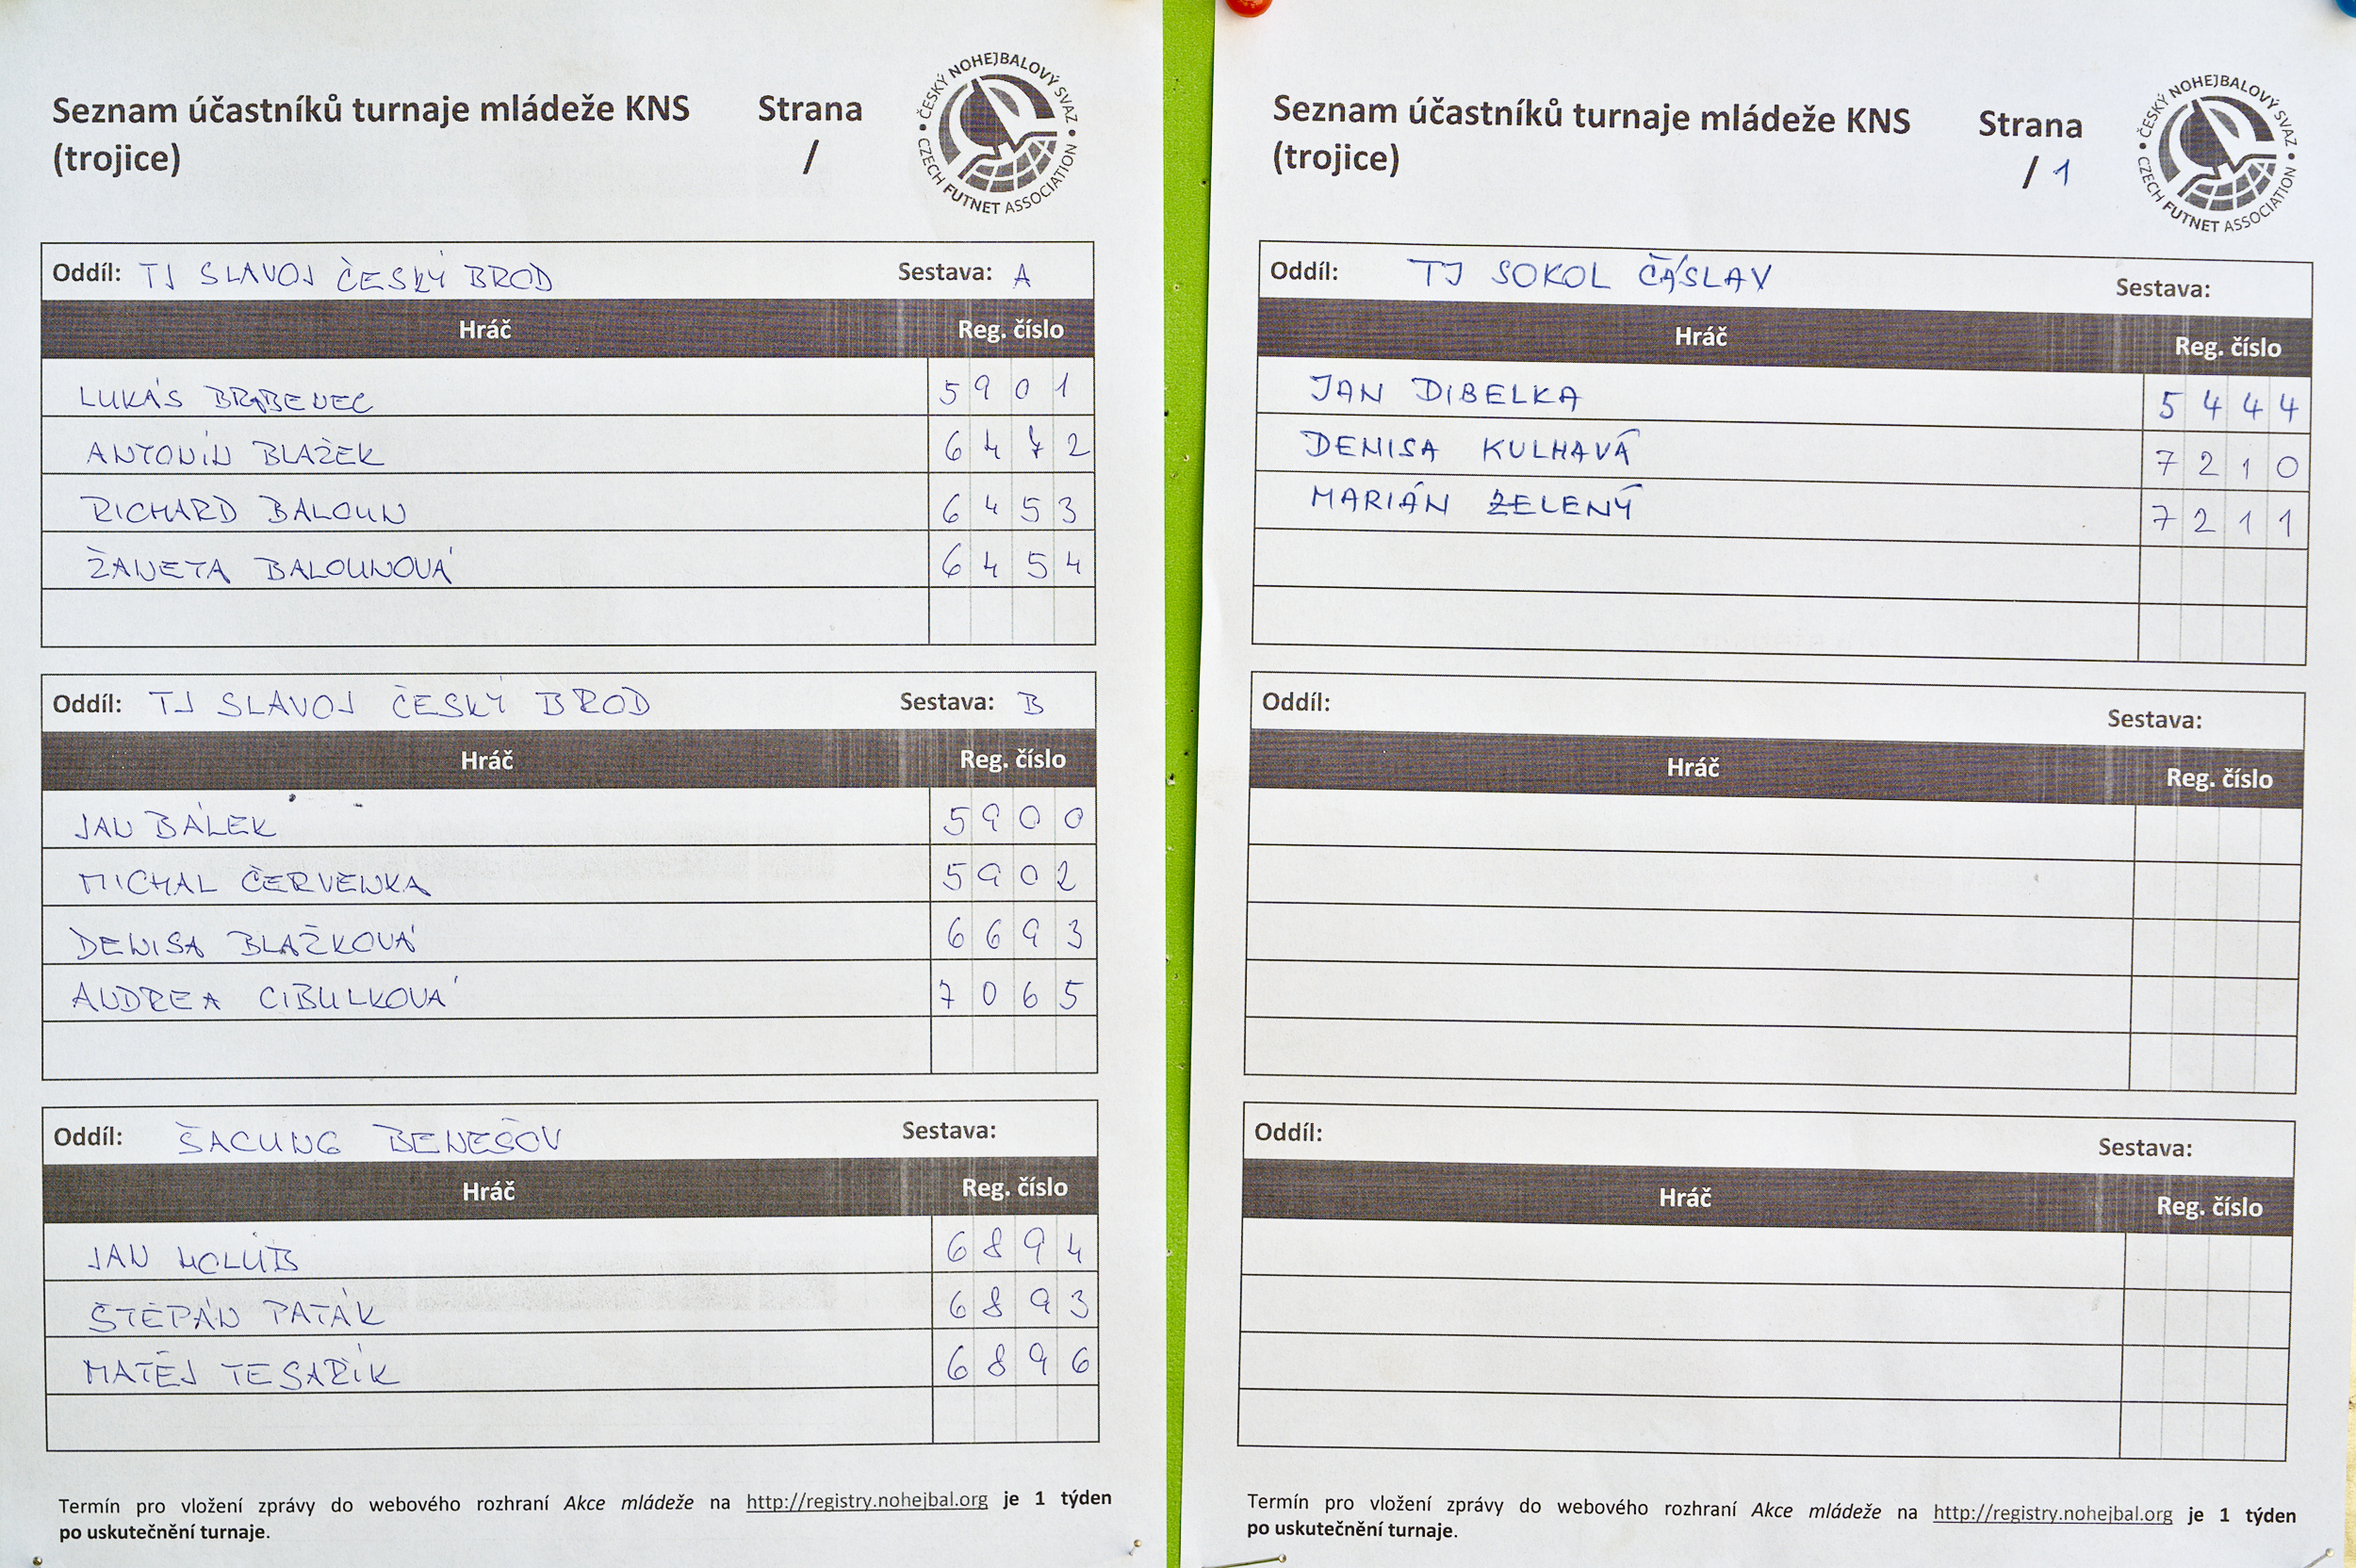 Seznam účastníků turnaje mládeže KNS Strana
(trojice) /
ČESKÝ NOHEJBALOVÝ SVAZ • CZECH FUTNET ASSOCIATION •
Oddíl: TJ SLAVOJ ČESKÝ BROD Sestava: A
Hráč Reg. číslo
LUKÁS BRABENEC 5901
ANTONÍN BLAŽEK 6472
RICHARD BALOUN 6453
ŽANETA BALOUNOVÁ 6454
Oddíl: TJ SLAVOJ ČESKÝ BROD Sestava: B
Hráč Reg. číslo
JAN BÁLEK 5900
MICHAL ČERVENKA 5902
DENISA BLAŽKOVÁ 6693
ANDREA CIBULKOVÁ 7065
Oddíl: ŠACUNG BENEŠOV Sestava:
Hráč Reg. číslo
JAN HOLUB 6894
ŠTĚPÁN PATÁK 6893
MATĚJ TESAŘÍK 6896
Termín pro vložení zprávy do webového rozhraní Akce mládeže na http://registry.nohejbal.org je 1 týden
po uskutečnění turnaje.
Seznam účastníků turnaje mládeže KNS Strana
(trojice) / 1
ČESKÝ NOHEJBALOVÝ SVAZ • CZECH FUTNET ASSOCIATION •
Oddíl: TJ SOKOL ČÁSLAV Sestava:
Hráč Reg. číslo
JAN DIBELKA 5444
DENISA KULHAVÁ 7210
MARIÁN ZELENÝ 7211
Oddíl: Sestava:
Hráč Reg. číslo
Oddíl: Sestava:
Hráč Reg. číslo
Termín pro vložení zprávy do webového rozhraní Akce mládeže na http://registry.nohejbal.org je 1 týden
po uskutečnění turnaje.